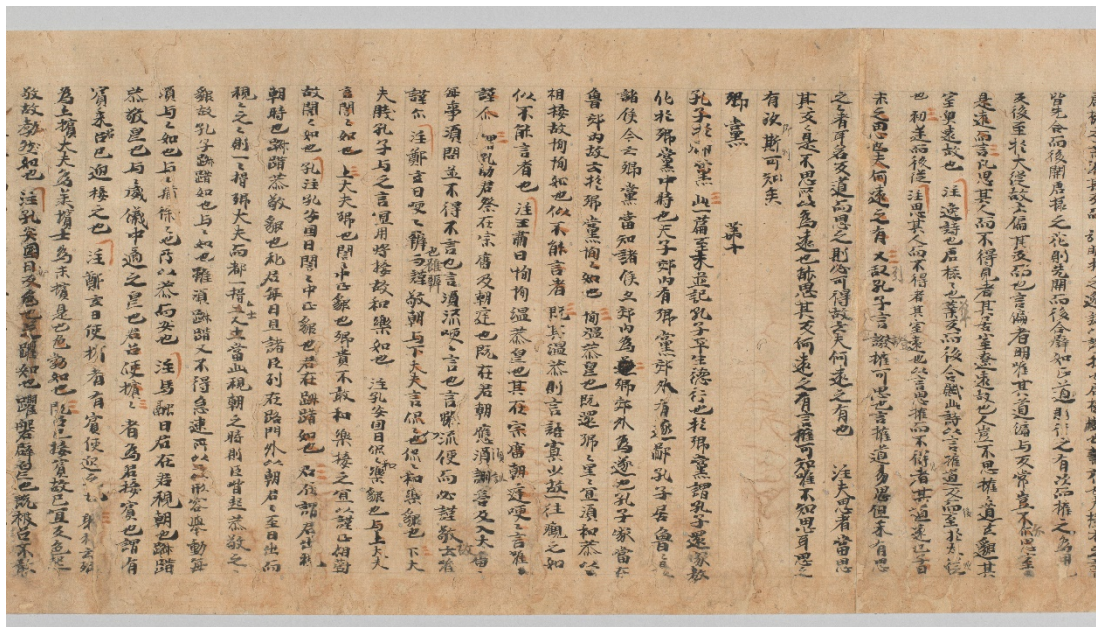 皆先合而後開唐棣之花則先開而後合譬如正道則行之有次而權之為用
反後至於大從故云偏其反而也言偏者明唯其道偏与反常豈不爾思室
是遠而言凡思其人而不得見者其室遠故也人豈不思權之道玄邈其
室奧遠故也 注逸詩也唐棣之也華反而後合賦此詩以言權道反而至於大從
也 初逆而後從注思其人而不得者其室遠也以言思權而不得者其道遠也子曰
未之思也夫何遠之有 又引孔子言證權可思也言權道易思但未有思
之者耳若反道而思之則必可得故云夫何遠之有也 注夫思者當思
其反之是不思所以為遠也能思其反何遠之有言權可知唯不知思耳思之
有次斯可知矣
鄉黨 第十
孔子於鄉黨 此一篇至末並記孔子平生德行也於鄉黨謂孔子還家教
化於鄉黨中時也天子郊內有鄉黨郊外有遂鄙孔子居魯魯是
諸侯今云鄉黨當知諸侯亦郊內為鄉郊外為遂也孔子家當在
魯郊內故云於鄉黨恂〻如也 恂〻溫恭皃也既還鄉〻里宜須和恭以
相接故恂恂如也似不能言者 既其溫恭則言語寡少故一往觀之如
似不能言者也 注王肅曰恂恂溫恭皃也其在宗廟朝廷便〻言唯
謹尒 謂孔助君祭在宗廟及朝廷也既在君朝應須酬答及入大廟
每事須問並不得不言也言須流便〻言也言雖流便而必謹敬故云唯
謹尒 注鄭玄曰便〻辯也雖辯而謹敬朝与下大夫言侃〻也侃〻和樂皃也下大
夫賤孔子与之言宜用將接故和樂如也 注孔安國曰侃〻和樂皃也与上大夫
言誾〻如也 上大夫卿也誾〻中正皃也卿貴不敢和樂接之宜以謹正相對
故誾〻如也 注孔安國曰誾〻中正皃也君在踧踖如也 君在謂君出視
朝時也踧踖恭敬皃也礼君每日旦諸臣列在路門外以朝君〻至日出而
視〻之則一〻揖卿大夫而都一揖士當此視朝之時則臣皆起恭敬之
皃故孔子踧踖如也与〻如也雖須踧踖又不得急速所以形容舉動每
須与〻如也与〻猶徐〻也所以恭而安也 注馬融曰君在者君視朝也踧踖
恭敬皃也与〻威儀中適之皃也君召使擯〻者為君接賓也謂有
賓來召己迎接之也 注鄭玄曰使擯者有賓使迎之也
為上擯大夫為承擯士為末擯是也色勃如也 既召己接賓故己宜變色起
敬故勃然如也 注孔安國曰變色也足躩如也躩磐辟皃也既被召不敢